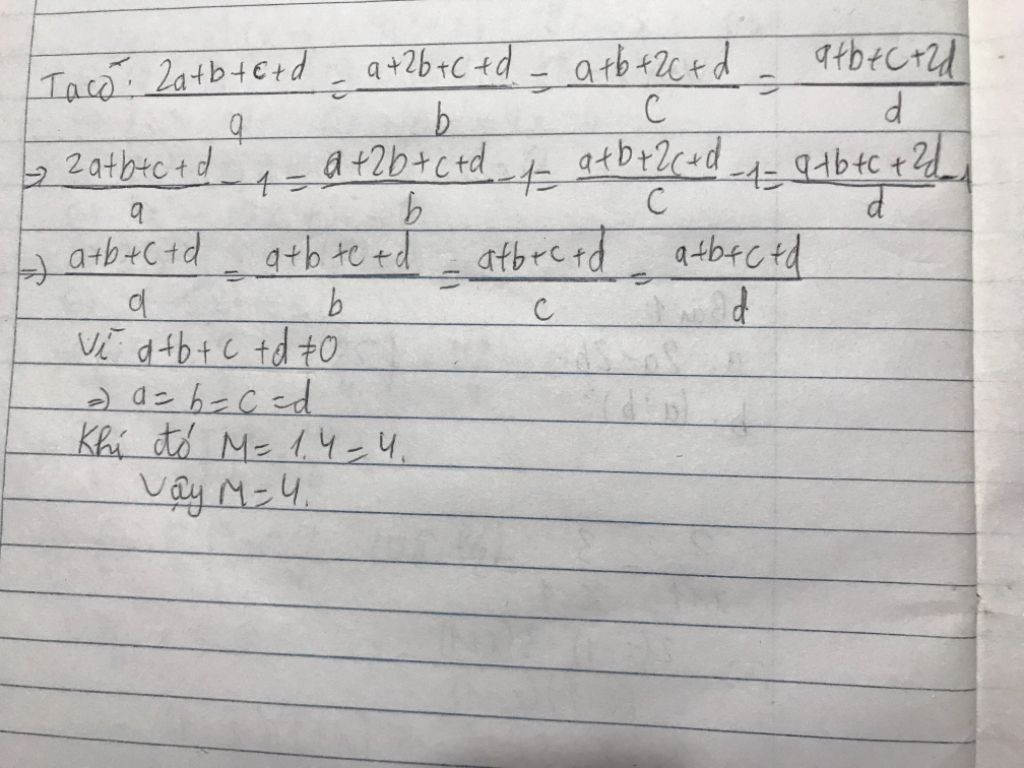 Ta có: (2a+b+c+d)/a = (a+2b+c+d)/b = (a+b+2c+d)/c = (a+b+c+2d)/d
⇒ (2a+b+c+d)/a - 1 = (a+2b+c+d)/b - 1 = (a+b+2c+d)/c - 1 = (a+b+c+2d)/d - 1
⇒ (a+b+c+d)/a = (a+b+c+d)/b = (a+b+c+d)/c = (a+b+c+d)/d
Vì a+b+c+d≠0
⇒ a=b=c=d
Khi đó M=1.4=4.
Vậy M=4.